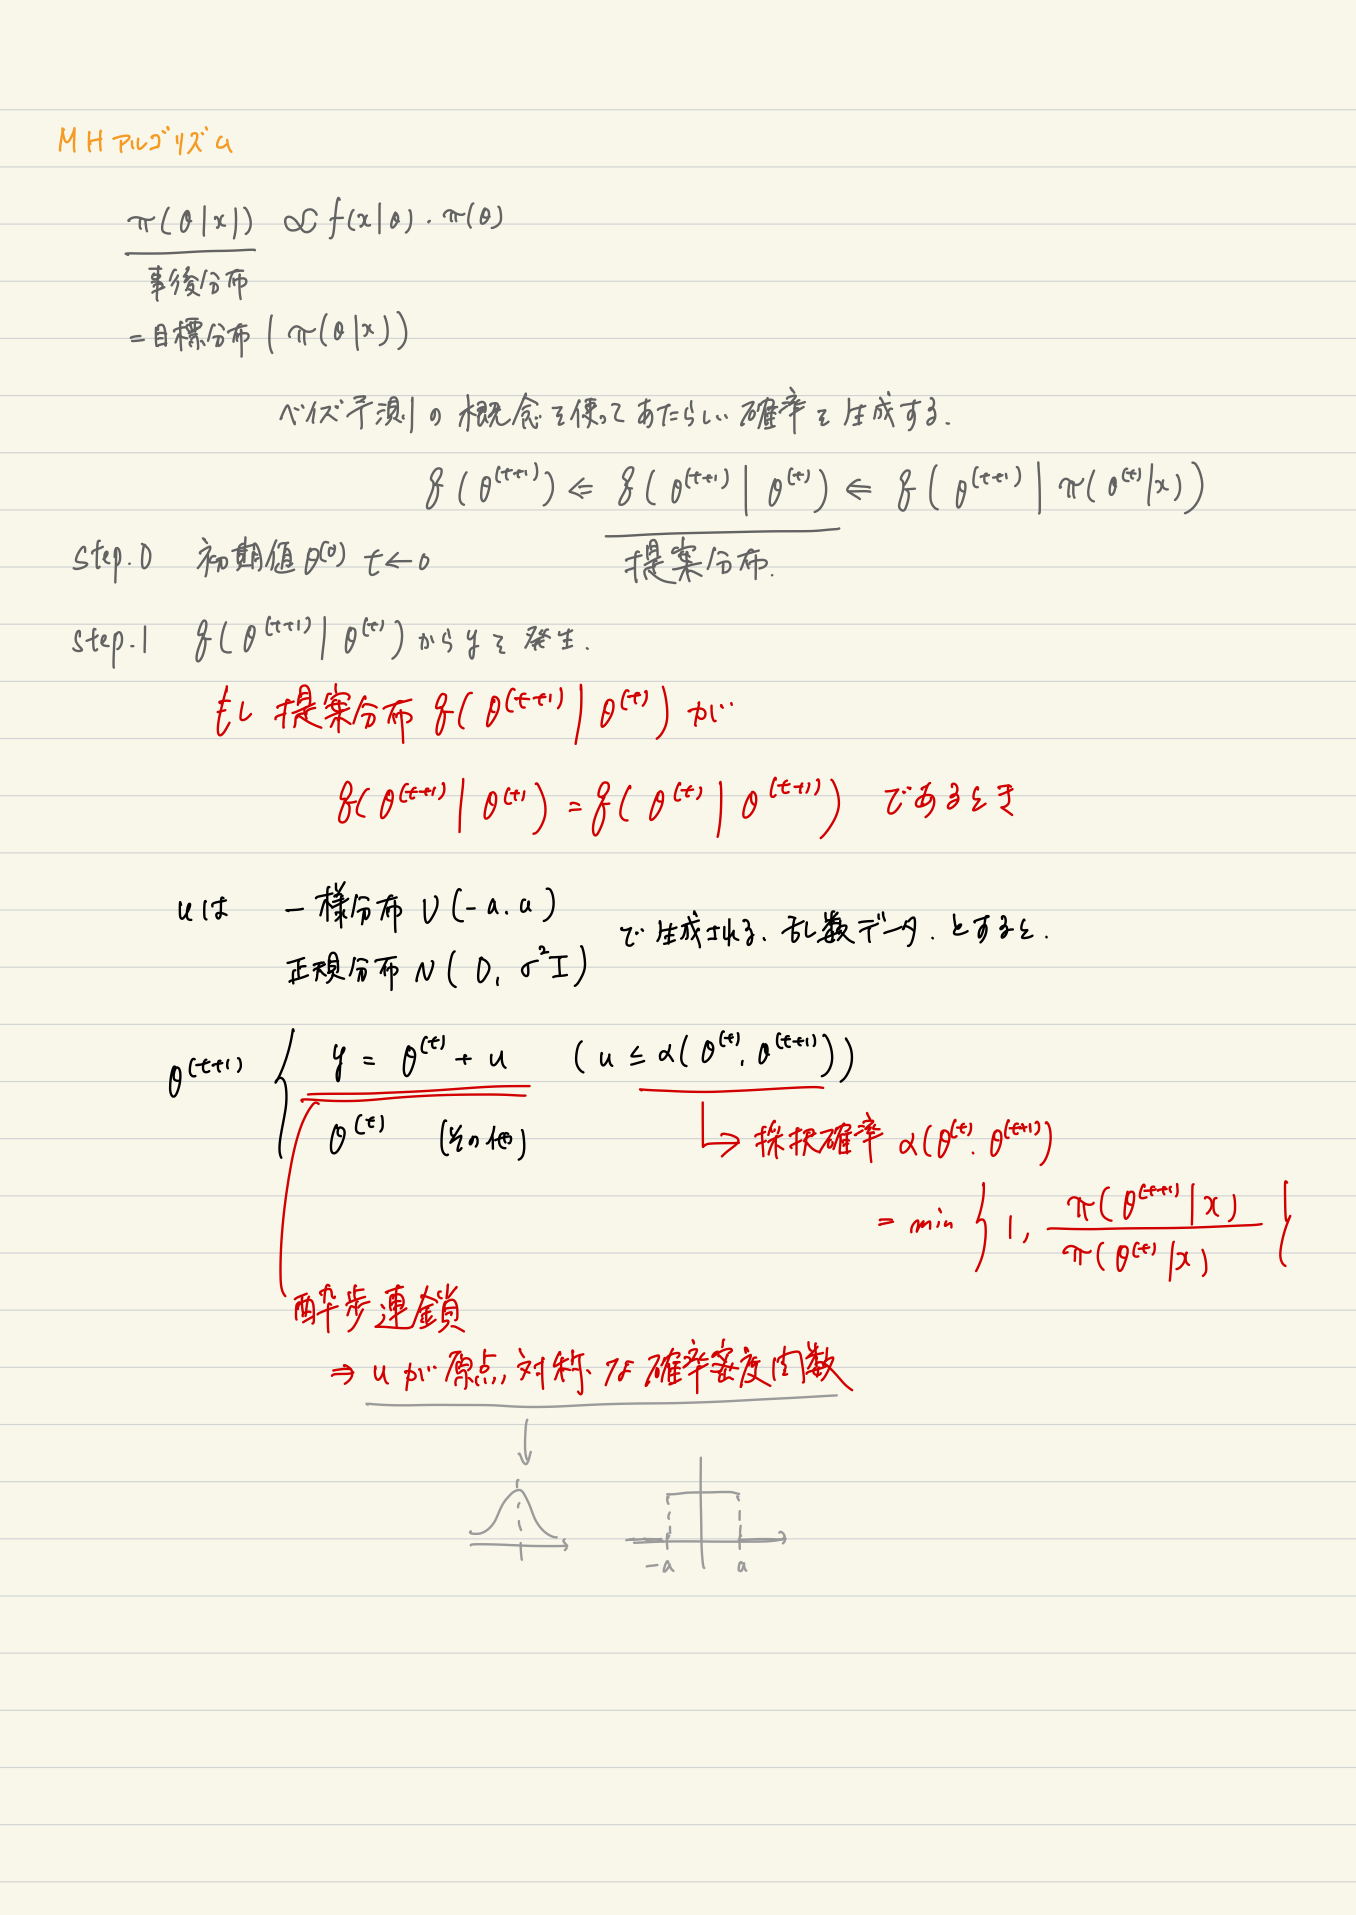 MHアルゴリズム
π(θ|x) ∝ f(x|θ)・π(θ)
事後分布
=目標分布(π(θ|x))
ベイズ予測の概念を使ってあたらしい確率を生成する.
q(θ^(t+1)) ⇐ q(θ^(t+1)|θ^(t)) ⇐ q(θ^(t+1)|π(θ^(t)|x))
提案分布.
step.0 初期値θ^(0) t←0
step.1 q(θ^(t+1)|θ^(t))からyを発生.
もし 提案分布 q(θ^(t+1)|θ^(t))が
q(θ^(t+1)|θ^(t)) = q(θ^(t)|θ^(t+1)) であるとき
uは 一様分布 U(-a, a)
正規分布 N(0, σ²I)
で生成される、乱数データ、とすると、
θ^(t+1) { y = θ^(t) + u (u ≤ α(θ^(t), θ^(t+1)))
θ^(t) (その他)
↳ 採択確率 α(θ^(t), θ^(t+1))
= min { 1, π(θ^(t+1)|x) / π(θ^(t)|x) }
酔歩連鎖
⇒ uが原点対称な確率密度関数
-a a